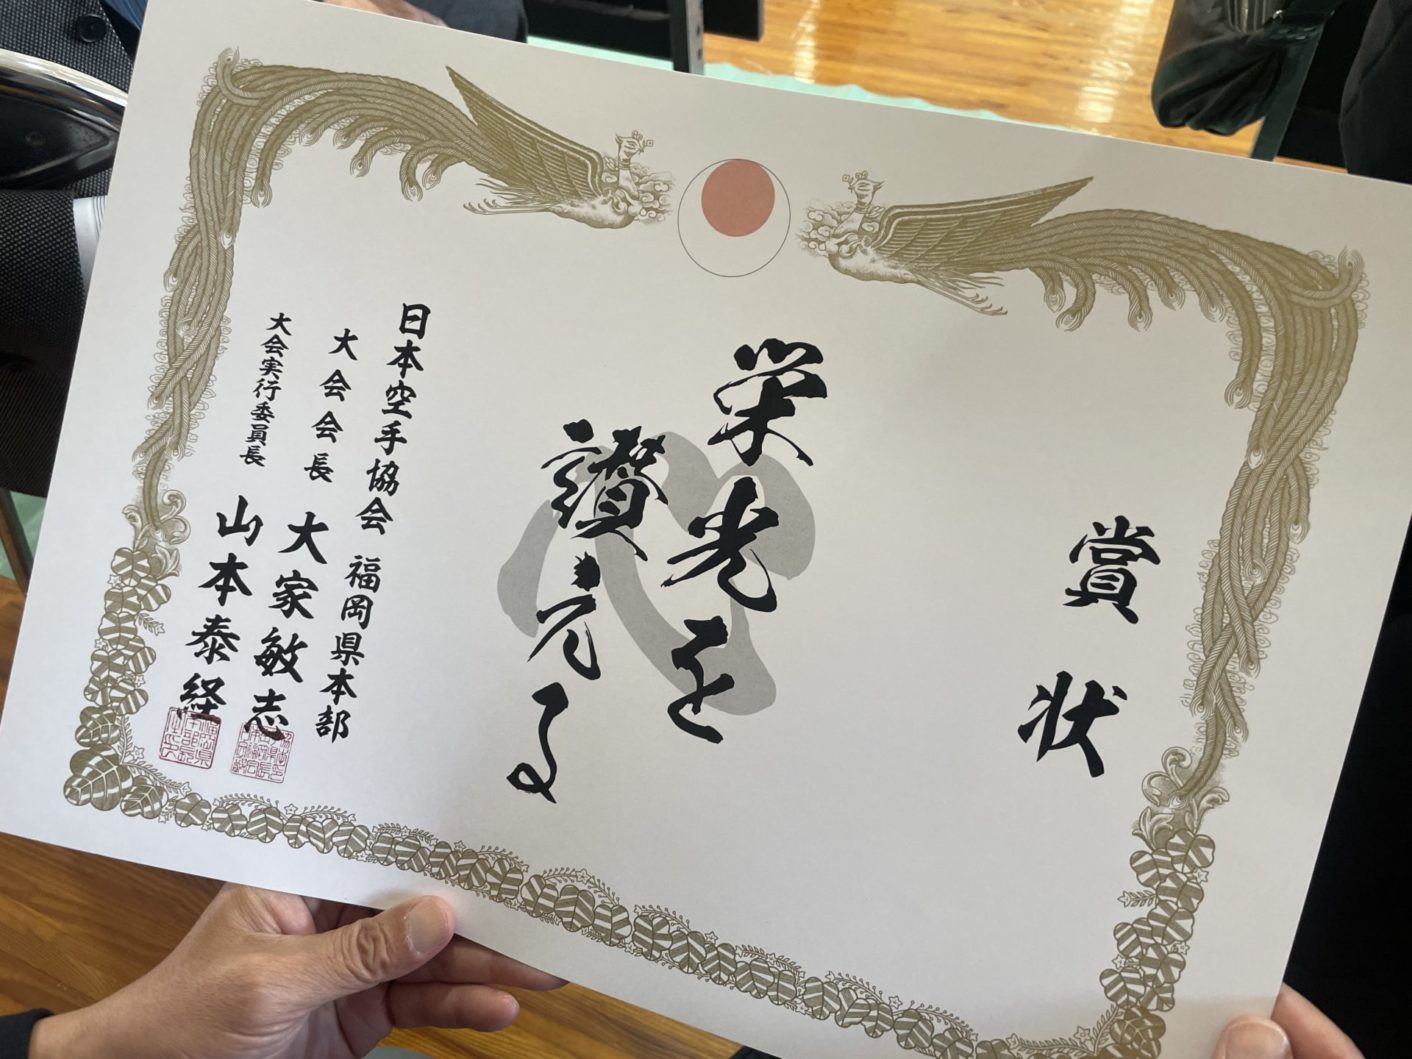 賞状
栄光を
讃える
日本空手協会 福岡県本部
大会会長 大家敏志
大会実行委員長 山本泰経